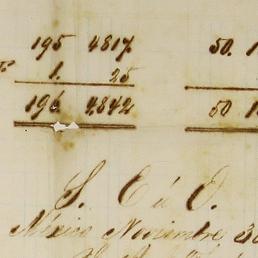 195 4817 50. 1
1. 25
196 4842 50 1
S. E ú O.
México Noviembre 30